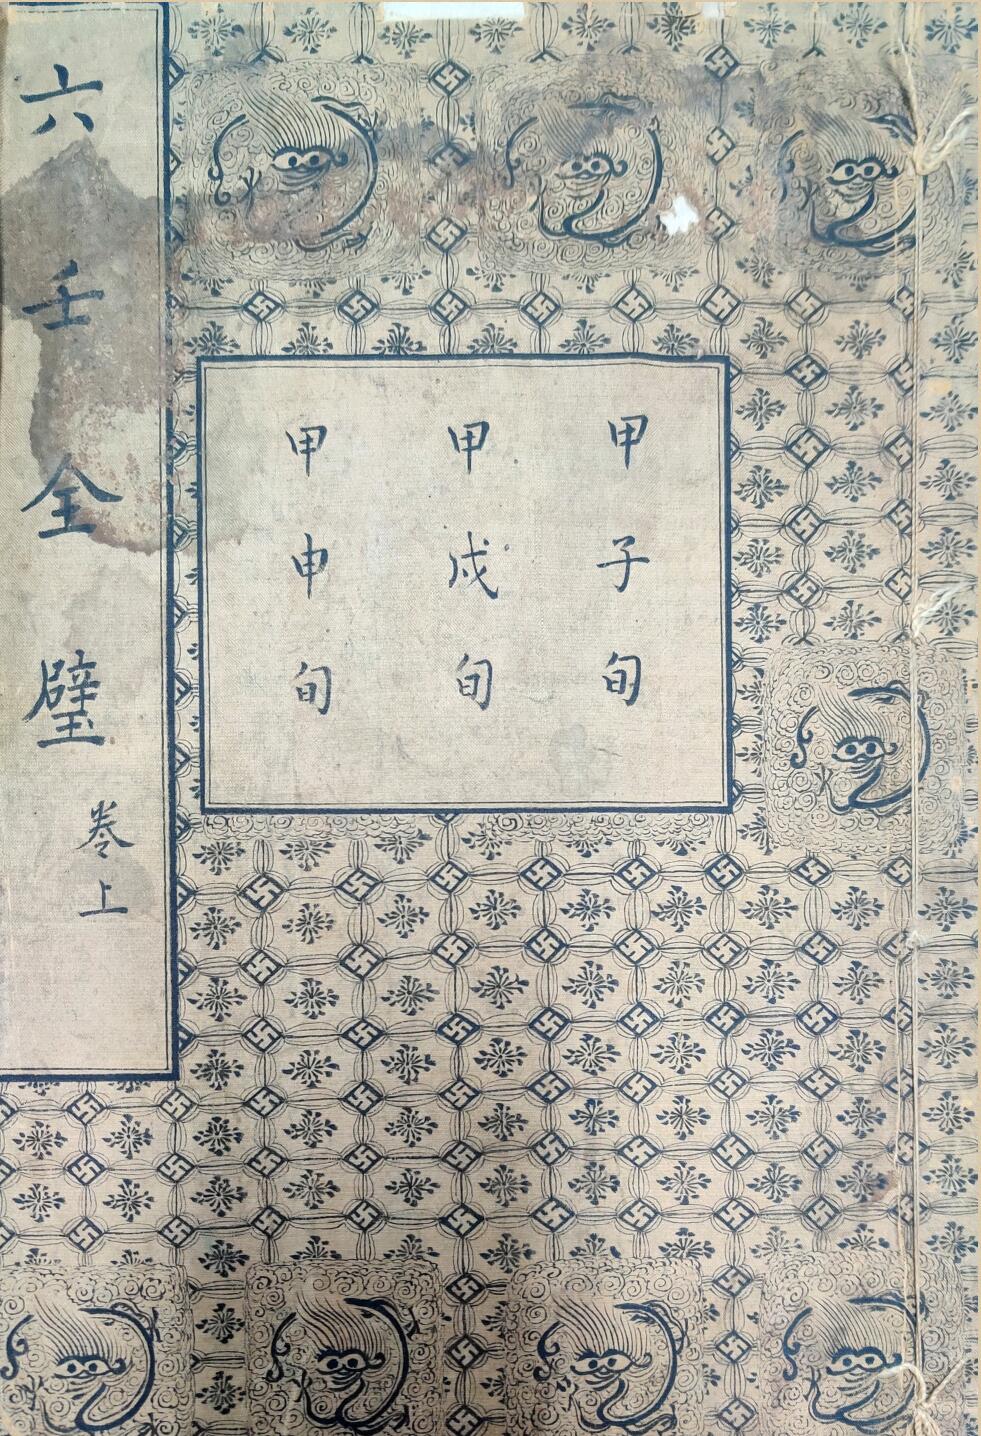 甲子旬
甲戍旬
甲申旬
六壬全璧
卷上